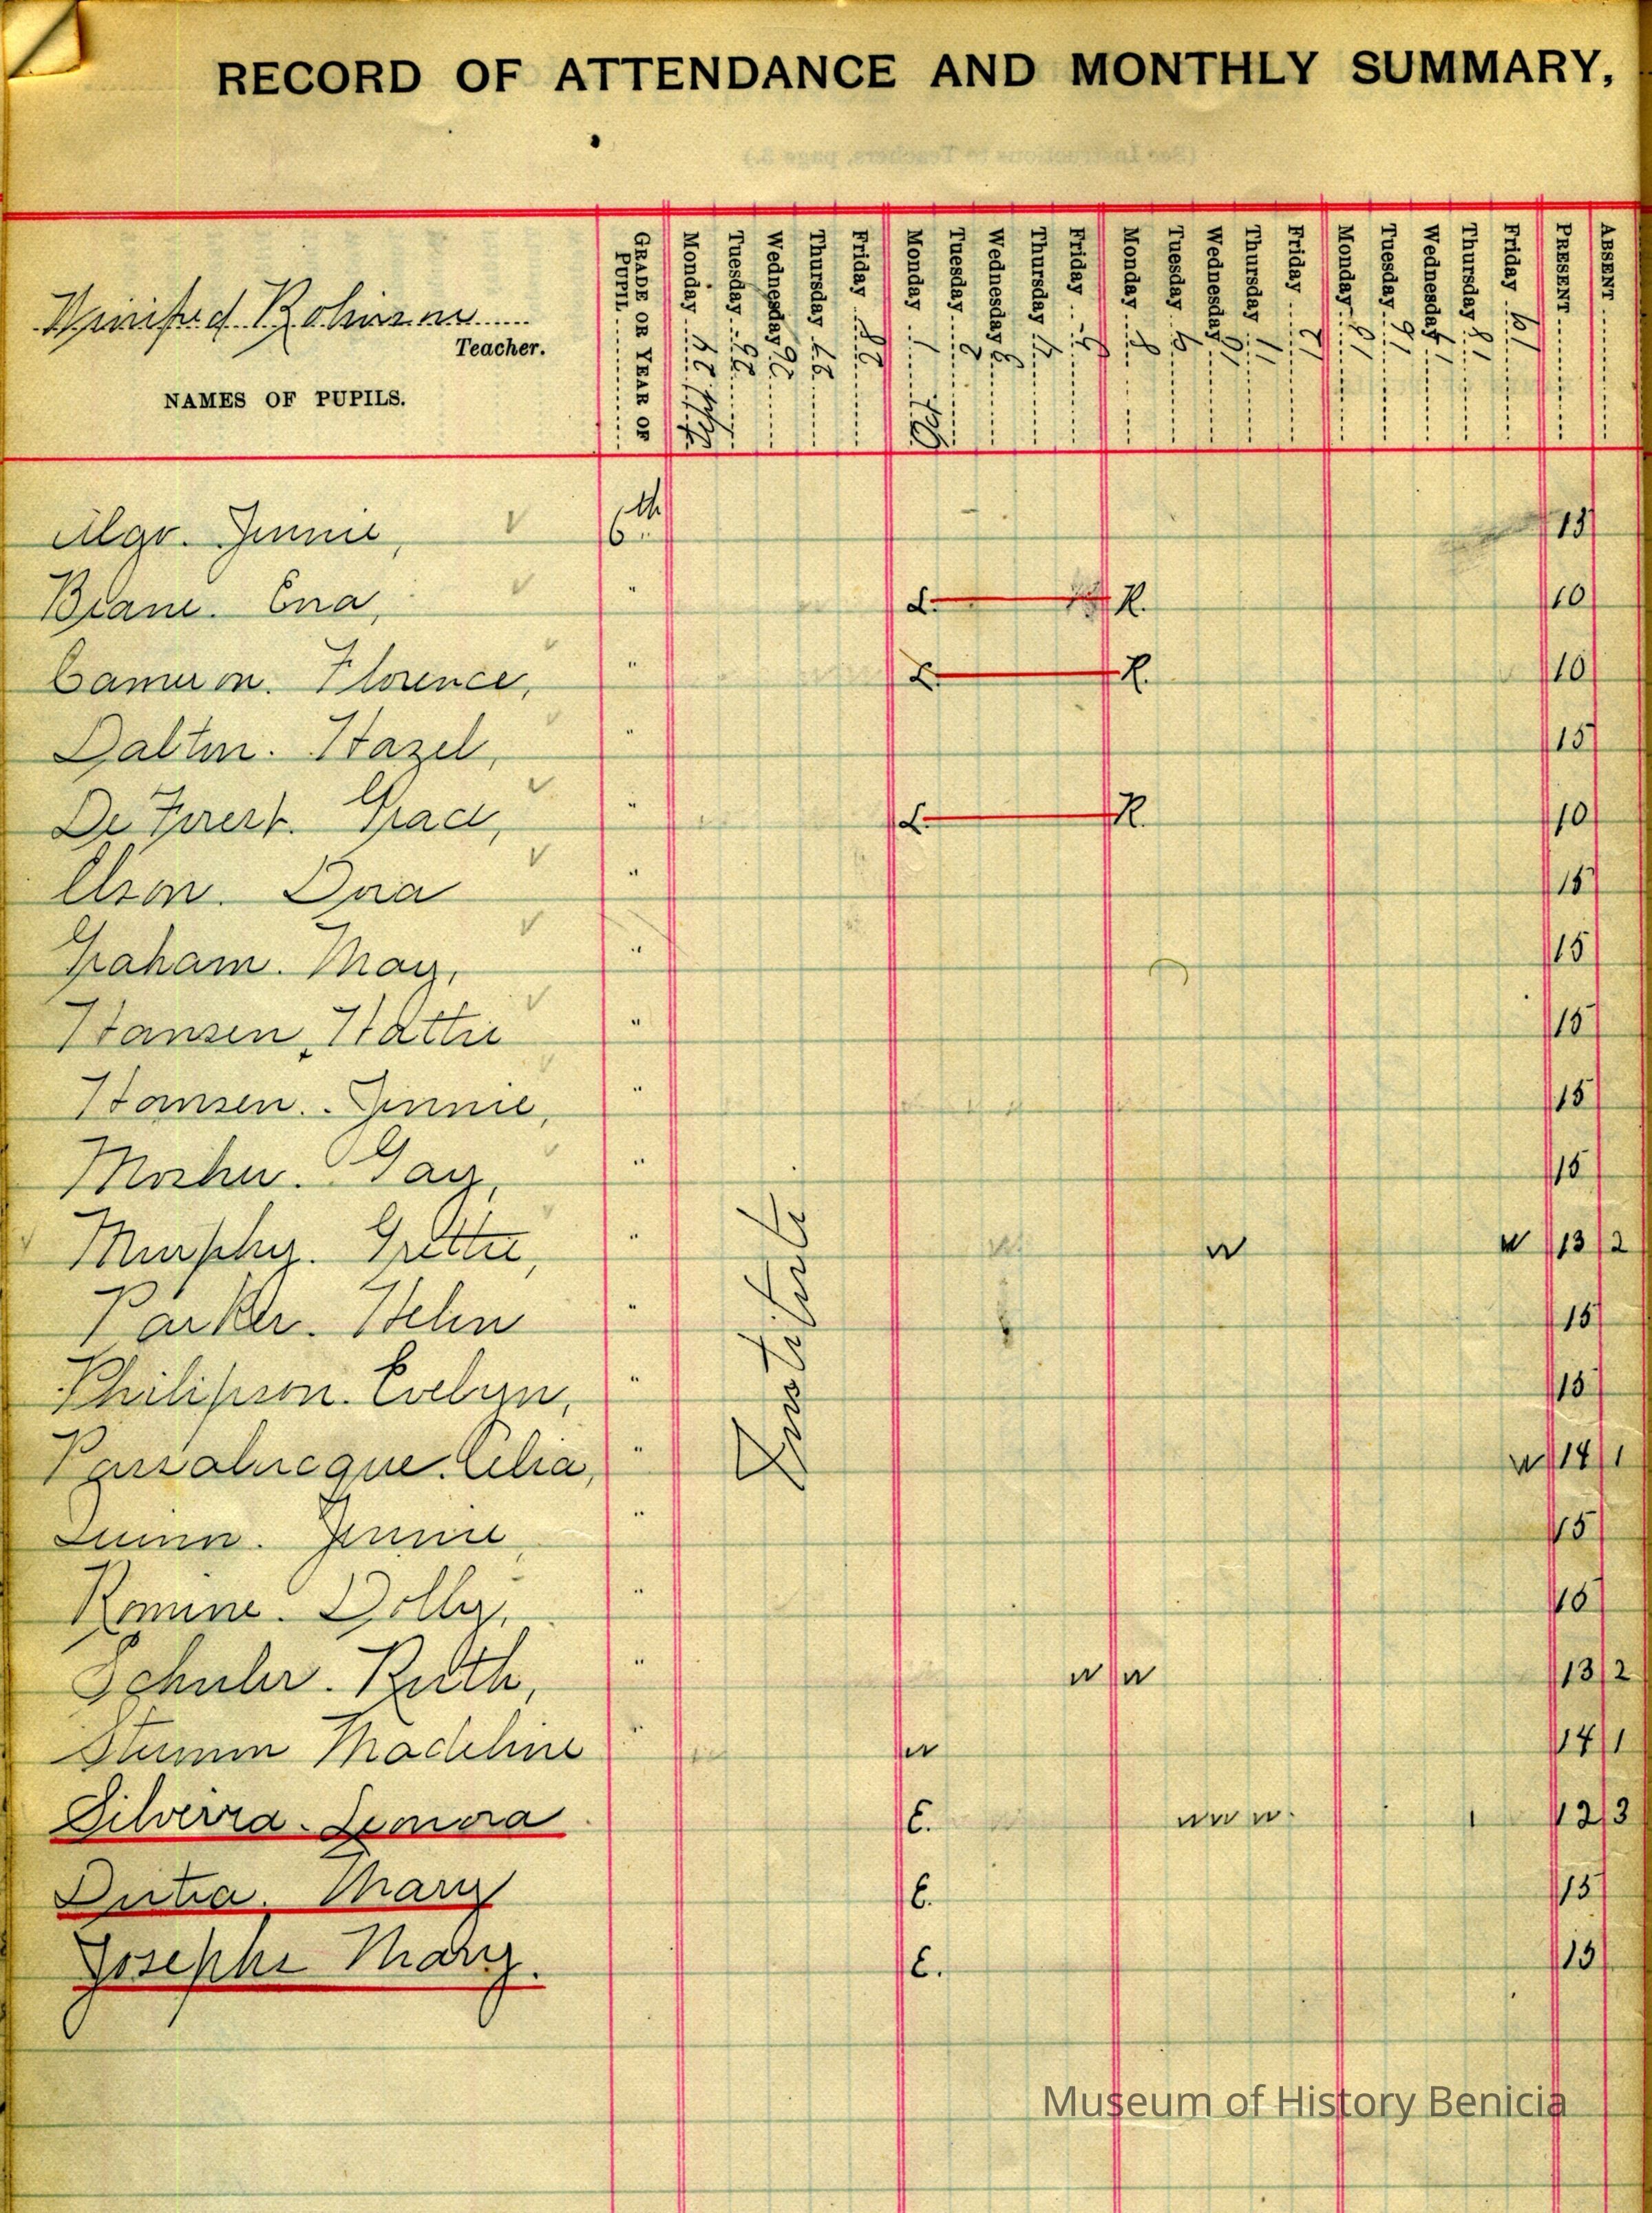 RECORD OF ATTENDANCE AND MONTHLY SUMMARY,
Winifred Robinson
Teacher.
NAMES OF PUPILS.
GRADE OR YEAR OF PUPIL
Monday 24 Sept.
Tuesday 25
Wednesday 26
Thursday 27
Friday 28
Monday 1 Oct.
Tuesday 2
Wednesday 3
Thursday 4
Friday 5
Monday 8
Tuesday 9
Wednesday 10
Thursday 11
Friday 12
Monday 15
Tuesday 16
Wednesday 17
Thursday 18
Friday 19
PRESENT
ABSENT
Algo. Jennie, 6th 15
Beane. Ena, " L. R. 10
Cameron. Florence, " L. R. 10
Dalton. Hazel, " 15
De Forest. Grace, " L. R. 10
Elson. Dora " 15
Graham. May, " 15
Hansen, Hattie " 15
Hansen. Jennie, " 15
Mosher. Gay, " 15
Murphy. Grettie, " w w 13 2
Parker. Helen " 15
Philipson. Evelyn, " 15
Passalacqua. Celia, " w 14 1
Quinn. Jennie, " 15
Romine. Dolly, " 15
Schuler. Ruth, " w w 13 2
Stumm Madeline " w 14 1
Silverra. Lenora E. w w w 12 3
Dutra. Mary E. 15
Josephs Mary. E. 15
Institute.
Museum of History Benicia